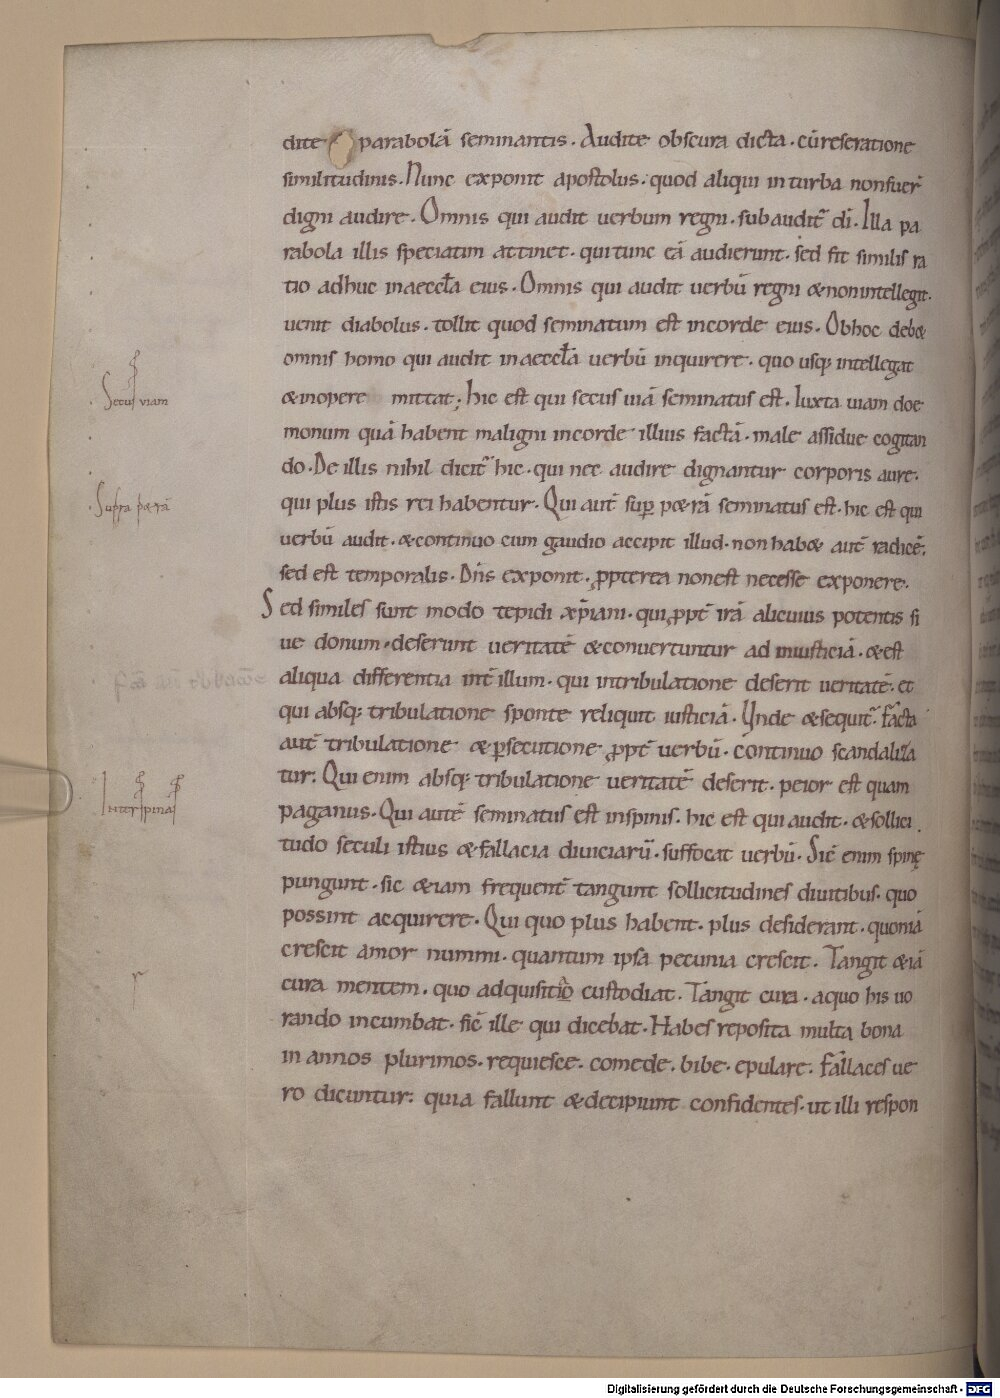 dite parabolā seminantis. Audite obscura dicta. cū reseratione
similitudinis. Nunc exponit apostolus. quod aliqui in turba non fuer̄
digni audire. Omnis qui audit uerbum regni. subaudit̄ dī. Illa pa
rabola illis speciatim attinet. qui tunc eā audierunt. sed fit similis ra
tio adhuc in aeccła eius. Omnis qui audit uerbū regni & non intellegit.
uenit diabolus. tollit quod seminatum est in corde eius. Ob hoc deb&
omnis homo qui audit in aeccła uerbū inquirere. quo usq; intellegat
& in opere mittat; hic est qui secus uiā seminatus est. Iuxta uiam doe
Secus viam
monum quā habent maligni in corde illius factā. male assidue cogitan
do. De illis nihil dicit̄ hic. qui nec audire dignantur corporis aure.
qui plus istis rei habentur. Qui aut̄ sup̄ p&rā seminatus est. hic est qui
Supra p&rā
uerbū audit. & continuo cum gaudio accipit illud. non hab& aut̄ radicē.
sed est temporalis. Dn̄s exponit. ꝓpterea non est necesse exponere.
Sed similes sunt modo tepidi xp̄iani. qui ꝓpt̄ irā alicuius potentis si
ue donum. deserunt ueritatē & conuertuntur ad iniusticiā. & est
aliqua differentia int̄ illum. qui in tribulatione deserit ueritatē. et
qui absq; tribulatione sponte reliquit iusticiā. Unde & sequit̄. Facta
aut̄ tribulatione & ꝑsecutione ꝓpt̄ uerbū. continuo scandaliza
tur. Qui enim absq; tribulatione ueritatē deserit. peior est quam
Inter spinas
paganus. Qui autē seminatus est in spinis. hic est qui audit. & sollici
tudo seculi istius & fallacia diuiciarū. suffocat uerbū. Sic̄ enim spinę
pungunt. sic &iam frequent̄ tangunt sollicitudines diuitibus. quo
possint acquirere. Qui quo plus habent. plus desiderant. quoniā
crescit amor nummi. quantum ipsa pecunia crescit. Tangit &iā
cura mentem. quo adquisitio custodiat. Tangit cura. a quo his uo
rando incumbat. sic̄ ille qui dicebat. Habes reposita multa bona
in annos plurimos. requiesce. comede. bibe. epulare. Fallaces ue
ro dicuntur. quia fallunt & decipiunt confidentes. ut illi respon
Digitalisierung gefördert durch die Deutsche Forschungsgemeinschaft - DFG